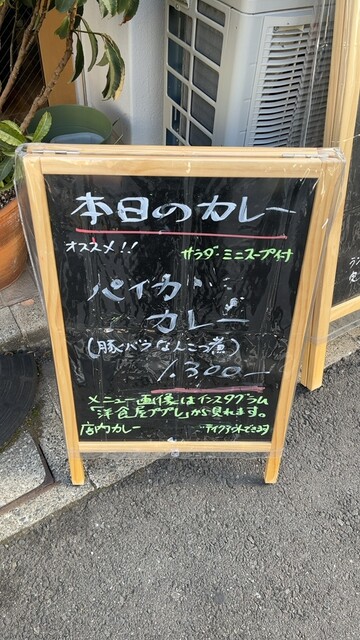 本日のカレー
オススメ!!
サラダ・ミニスープ付
パイカ
カレー
(豚バラなんこつ煮)
1,300-
メニュー画像はインスタグラム
「洋食屋ププレ」から見れます。
店内カレー
テイクアウトできます